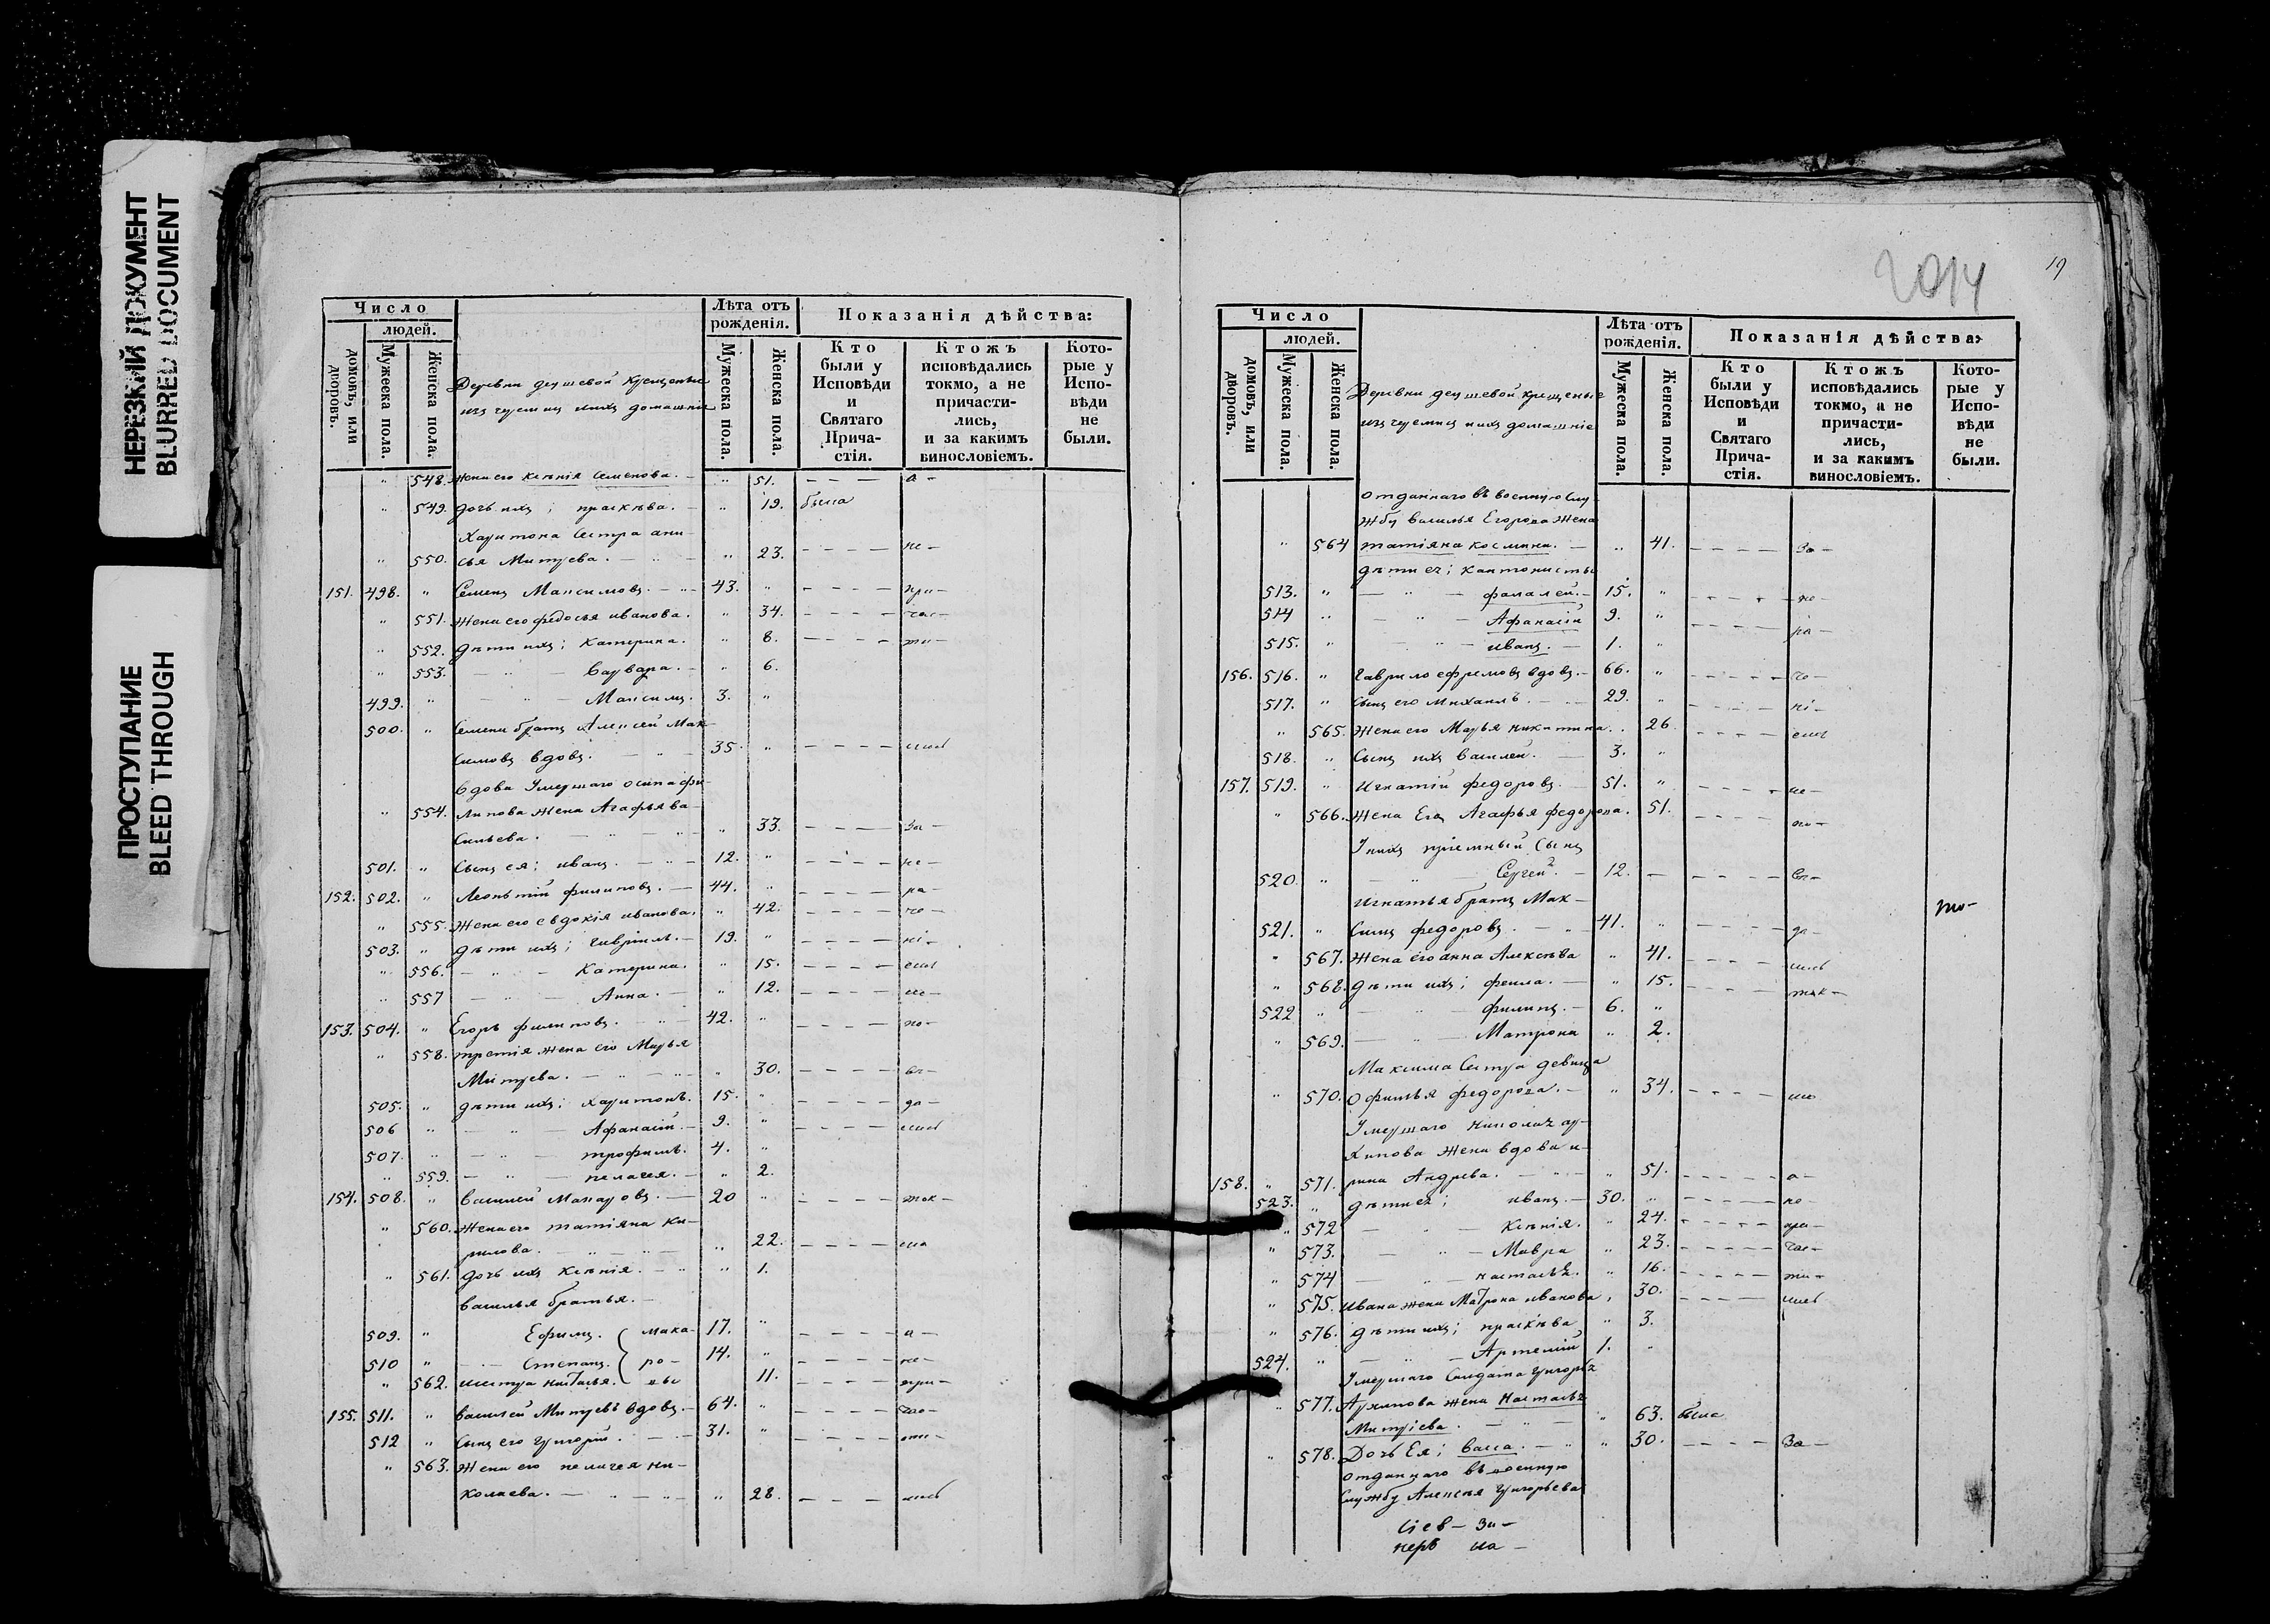 НЕРЕЗКИЙ ДОКУМЕНТ
BLURRED DOCUMENT
ПРОСТУПАНИЕ
BLEED THROUGH
Число
людей.
домовъ, или дворовъ.
Мужеска пола.
Женска пола.
Деревни деушевой крещеные
изъ чуемиц ихъ домашніе
Лѣта отъ рожденія.
Мужеска пола.
Женска пола.
Показанія дѣйства:
Кто были у Исповѣди и Святаго Причастія.
Ктожъ исповѣдались токмо, а не причастились, и за какимъ винословіемъ.
Которые у Исповѣди не были.
" 548. Жена его Ксѣнія Семенова. — " 51. — — — а —
" 549. дочь ихъ; праскѣва. — " 19. была
Харитона Сестра ани-
" 550. сья Митрева. — " — " 23. — — — — не —
151. 498. " Семенъ Максимовъ. — " — 43. " — — — — при —
" 551. Жена его федосья иванова. " 34. — — — — час —
" 552. дѣти ихъ; Катерина. " 8. — — — — ти —
" 553. — " — Варвара. — " 6.
499. " — " — Максимъ. 3. "
500. " Семена братъ Алексей Мак-
симовъ вдовъ. — " — 35. " — — — — лись
вдова Умершаго осипа фи-
" 554. липова жена Агафья ва-
сильева. — " — " — " 33. — — — — за —
501. " Сынъ ея; иванъ. — " — 12. " — — — — не —
152. 502. " Леонътій филиповъ. — 44. " — — — — ра —
" 555. Жена его евдокія иванова. " 42. — — — — че —
503. " дѣти ихъ; гавріилъ. — 19. " — — — — ні —
" 556. — " — Катерина. " 15. — — — — емъ
" 557 — " — Анна. — " 12. — — — — ис —
153. 504. " Егоръ филиповъ. — " — 42. " — — — — по —
" 558. третія жена его Марья
Митрева. — " — " — " 30. — — — — вѣ —
505. " дѣти ихъ; харитонъ. 15. " — — — — да —
506 " — " — Афанасій. — 9. " — — — — лись
507. " — " — трофимъ. 4. "
" 559. — " — пелагея. — " 2.
154. 508. " василей Макаровъ. — 20 " — — — — ток —
" 560. Жена его татіяна Ки-
рилова. — " — " — " 22. — — — — мо
" 561. дочь ихъ Ксѣнія. — " " 1.
василья братья. —
509. " Ефимъ. { мака- 17. " — — — — а —
510 " — — Степанъ. { ро- 14. " — — — — не —
" 562. сестра настасья. { вы 11. — — — — при —
155. 511. " василей Митревъ вдовъ. — 64. " — — — — час —
512 " Сынъ его григорій. — — 31. " — — — — ти —
" 563. Жена его пелагея ни-
колаева. — " — " — " 28. — — — лись
2014
19
Число
людей.
домовъ, или дворовъ.
Мужеска пола.
Женска пола.
Деревни деушевой крещеные
изъ чуемиц ихъ домашніе
Лѣта отъ рожденія.
Мужеска пола.
Женска пола.
Показанія дѣйства:
Кто были у Исповѣди и Святаго Причастія.
Ктожъ исповѣдались токмо, а не причастились, и за какимъ винословіемъ.
Которые у Исповѣди не были.
отданнаго въ военную слу-
жбу василья Егорова жена
" 564 татіяна космина. — " 41. — — — — за —
дѣти ея; кантонисты
513. " — " — фалалей. — 15. " — — — — не —
514 " — " — Афанасій 9. " — — — — ра —
515. " — " — иванъ. — 1. "
156. 516. " гаврило ефремовъ вдовъ. — 66. " — — — — че —
517. " сынъ его михаилъ. — — 29. " — — — — ні —
" 565. Жена его Марья никитина. " 26. — — — — емъ
518. " Сынъ ихъ василей. — 3. "
157. 519. " Игнатій федоровъ. — 51. " — — — — ис —
" 566. Жена Его Агафья федорова. 51. — — — — по —
У нихъ пріемный сынъ
520. " — " — Сергей. — 12. — — — — — вѣ —
Игнатья братъ Мак —
521. " симъ федоровъ. — " — 41. " — — — — да —
" 567. Жена его анна Алексѣва " 41. — — — — лись
" 568. дѣти ихъ; фекла. — " 15. — — — — ток —
522 " — " — филипъ. — 6. "
" 569. — " — Матрона " 2.
Максима Сестра девица
" 570. Офимья федорова. — " 34. — — — — мо
Умершаго Николая ар-
хипова жена вдова и-
158. " 571. рина Андрева. — " — " 51. — — — — а —
523. " дѣти ея; иванъ. — 30. " — — — — не —
" 572 — " — Ксѣнія. " 24. — — — — при —
" 573. — " — Мавра " 23. — — — — час —
" 574 — " — настасья. " 16. — — — — ти —
" 575. Ивана жена Матрона иванова. 30. — — — — лись
" 576. дѣти ихъ; праскѣва " 3.
524. " — " — Артемій 1. "
Умершаго Солдата григорья
" 577. Архипова жена Настасья
Митріева. — " — " 63. была
" 578. Дочь Ея; васса. — " " 30. — — — — За —
отданнаго въ военную
службу Алексея григорьева